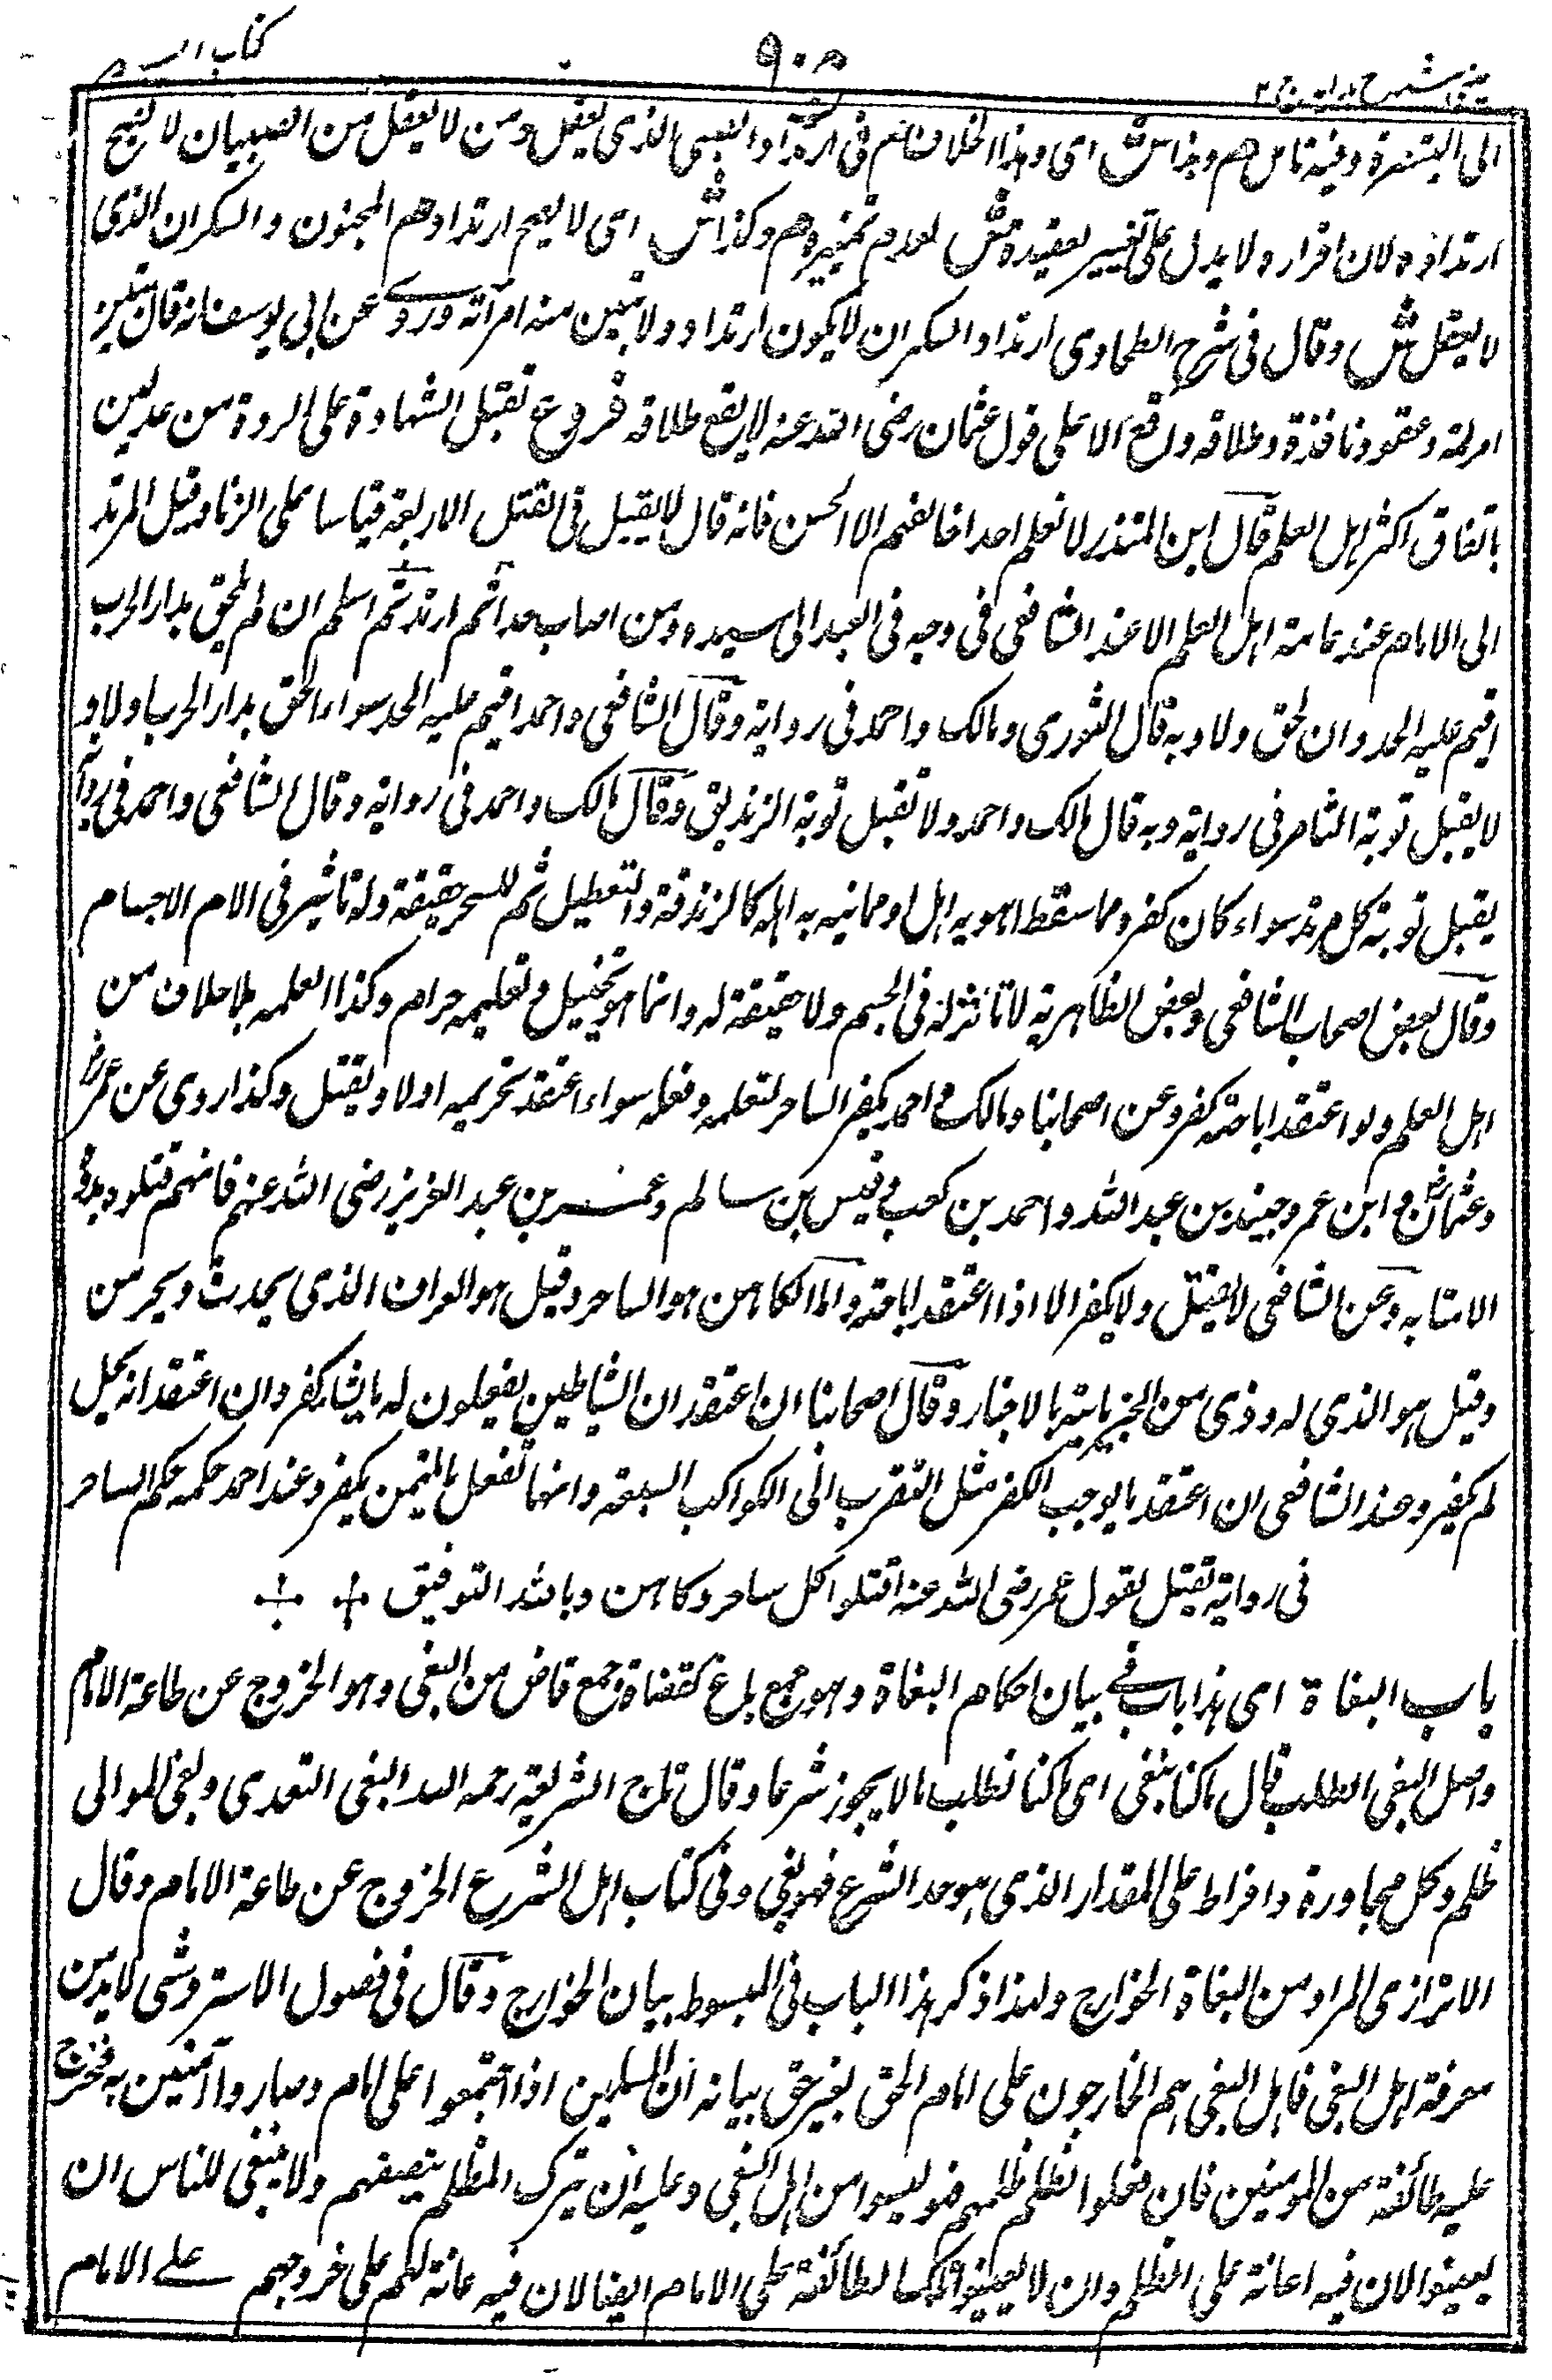 كتاب السير
٩٠٨
عينى شرح هدايه ج ٢
الى البشرة وفيه تامل هم وهذا ش اى وهذا الخلاف م فى ارتداد الصبى الذى يعقل ومن لا يعقل من الصبيان لا يصح
ارتداده لان اقراره لا يدل على تغيير العقيدة ش لعدم تمييزه هم وكذا ش اى لا يصح ارتداد هم المجنون والسكران الذى
لا يعقل ش وقال فى شرح الطحاوى ارتداد السكران لا يكون ارتداد ولا تبين منه امرأته وروى عن ابى يوسف انه قال تبين
امرأته وعقوده نافذة وطلاقه واقع الا على قول عثمان رضى الله عنه لا يقع طلاقه فروع تقبل الشهادة على الردة من عدلين
باتفاق اكثر اهل العلم قال ابن المنذر لا نعلم احدا خالفهم الا الحسن فانه قال لا يقبل فى القتل الا اربعة قياسا على الزنا وقتل المرتد
الى الامام عند عامة اهل العلم الا عند الشافعى فى وجه فى العبد الى سيده ومن اصاب حدا ثم ارتد ثم اسلم ان لم يلحق بدار الحرب
اقيم عليه الحد وان لحق ولا وبه قال الثورى ومالك واحمد فى رواية وقال الشافعى واحمد اقيم عليه الحد سواء الحق بدار الحرب اولا و
لا يقبل توبة الساحر فى رواية وبه قال مالك واحمد ولا تقبل توبة الزنديق وقال مالك واحمد فى رواية وقال الشافعى واحمد فى رواية
يقبل توبة كل مرتد سواء كان كفره مما يتظاهر به اهله او مما يسر به اهله كالزندقة والتعطيل ثم للسحر حقيقة وله تاثير فى الام الاجسام
وقال بعض اصحاب الشافعى وبعض الظاهرية لا تاثير له فى الجسم ولا حقيقة له وانما هو تخييل وتعليمه حرام وكذا العلمه بلا خلاف من
اهل العلم ولو اعتقد اباحته كفر وعن اصحابنا ومالك واحمد يكفر الساحر لتعلمه وفعله سواء اعتقد تحريمه اولا ويقتل وكذا روى عن عمر رض
وعثمان رض وابن عمر وجندب بن عبد الله واحمد بن كعب وقيس بن سالم وعمر بن عبد العزيز رضى الله عنهم فانهم قتلوه بدون
الاستتابه وعن الشافعى لا يقتل ولا يكفر الا اذا اعتقد اباحته واما الكاهن هو الساحر وقيل هو العراف الذى يحدث ويحر من
وقيل هو الذى له ودى من الجن ياتيه بالاخبار وقال اصحابنا ان اعتقد ان الشياطين يفعلون له ما يشا يكفر وان اعتقد انه يحيل
لم يكفر وعند الشافعى ان اعتقد ما يوجب الكفر مثل التقرب الى الكواكب السبعة وانها تفعل ما يلتمس يكفر وعند احمد حكمه حكم الساحر
فى رواية يقتل لقول عمر رضى الله عنه اقتلوا كل ساحر وكاهن وبالله التوفيق
باب البغاة اى هذا باب فى بيان احكام البغاة وهو جمع باغ كقضاة جمع قاض من البغى وهو الخروج عن طاعة الامام
واصل البغى الطلب قال ما كنا نبغى اى ما كنا نطلب مالا يجوز شرعا وقال تاج الشريعة رحمه الله البغى التعدى وبغى الموالى
ظلم وكل مجاورة وافراط على المقدار الذى هو حد الشرع فهو بغى وفى كتاب اهل الشرع الخروج عن طاعة الامام وقال
الاترازى المراد من البغاة الخوارج ولهذا ذكر هذا الباب فى المبسوط بيان الخوارج وقال فى فصول الاستروشنى لا بد من
معرفة اهل البغى فاهل البغى هم الخارجون على امام الحق بغير حق بيانه ان المسلمين اذا اجتمعوا على امام وصاروا آمنين به فخرج
عليه طائفة من المومنين فان فعلوا لظلم ظلمهم فهو ليسوا من اهل البغى وعليه ان يترك الظلم ينصفهم ولا ينبغى للناس ان
يعينوا لان فيه اعانة على الظلم وان لا يعينوا تلك الطائفة على الامام ايضا لان فيه عانة لهم على خروجهم على الامام